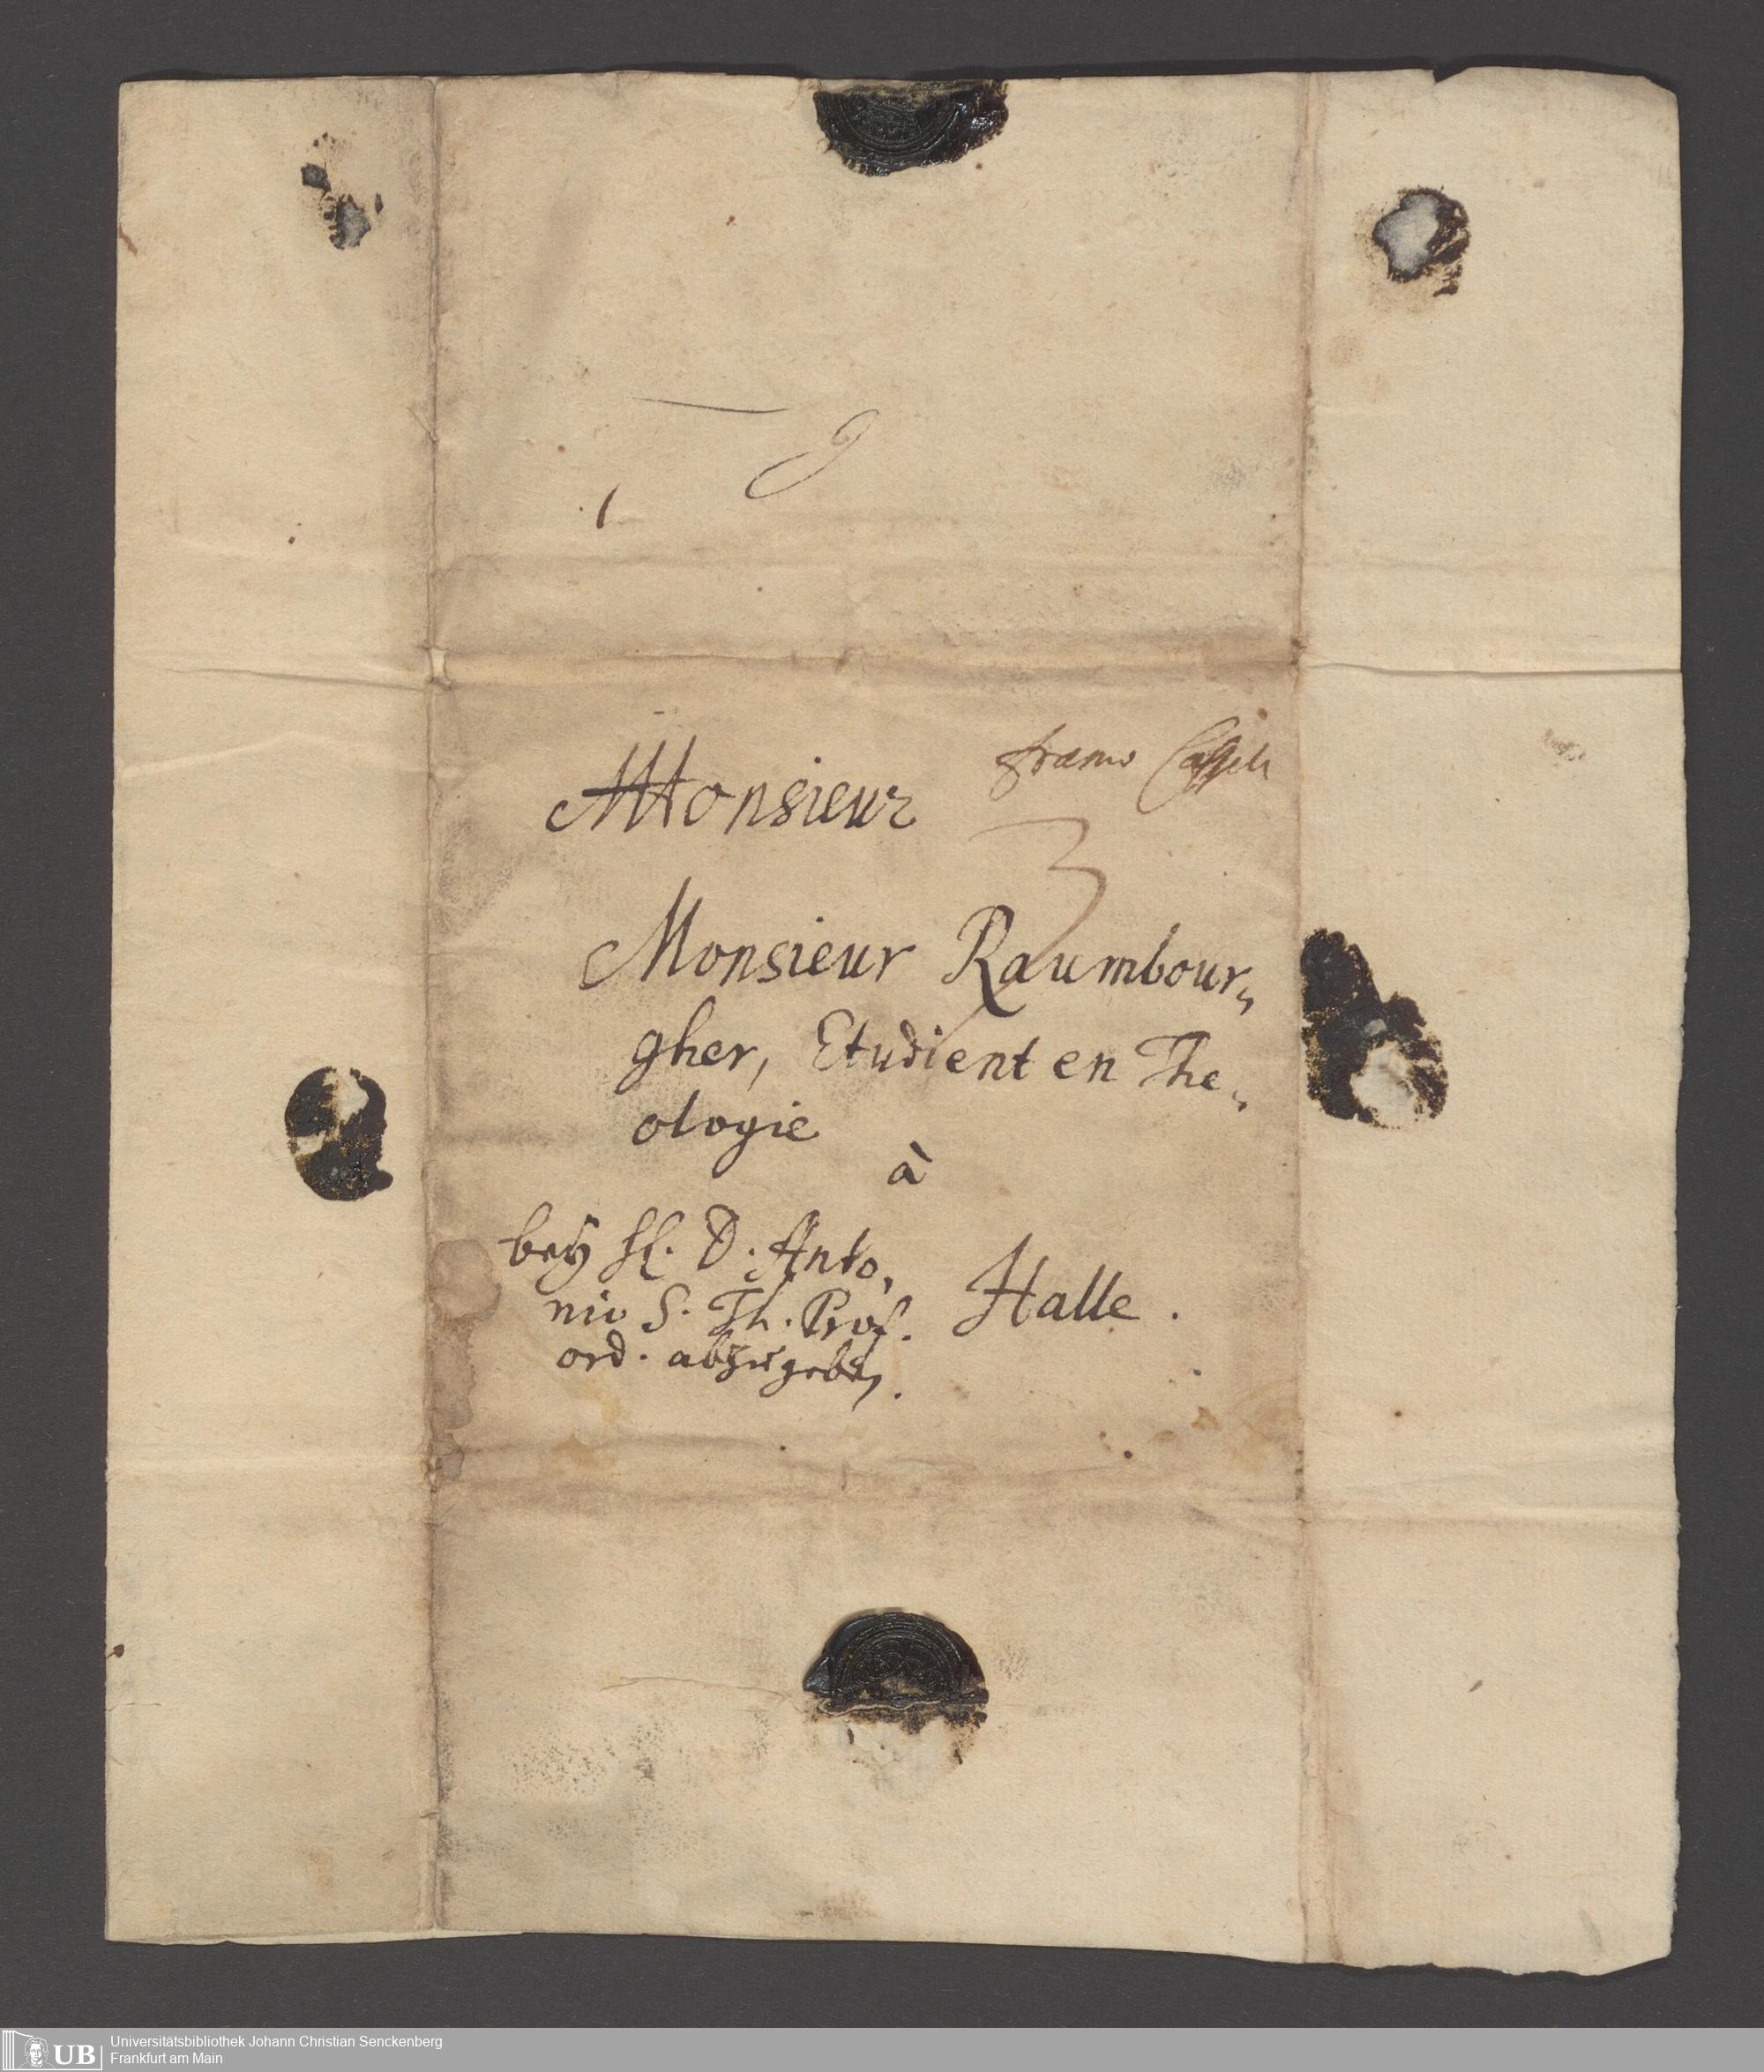 franco Cassel
Monsieur
3
Monsieur Raumbour„
gher, Etudient en The„
ologie
à
bey H. D. Anto„
nio S. Th. Prof.
ord. abzugeben.
Halle.
UB
Universitätsbibliothek Johann Christian Senckenberg
Frankfurt am Main